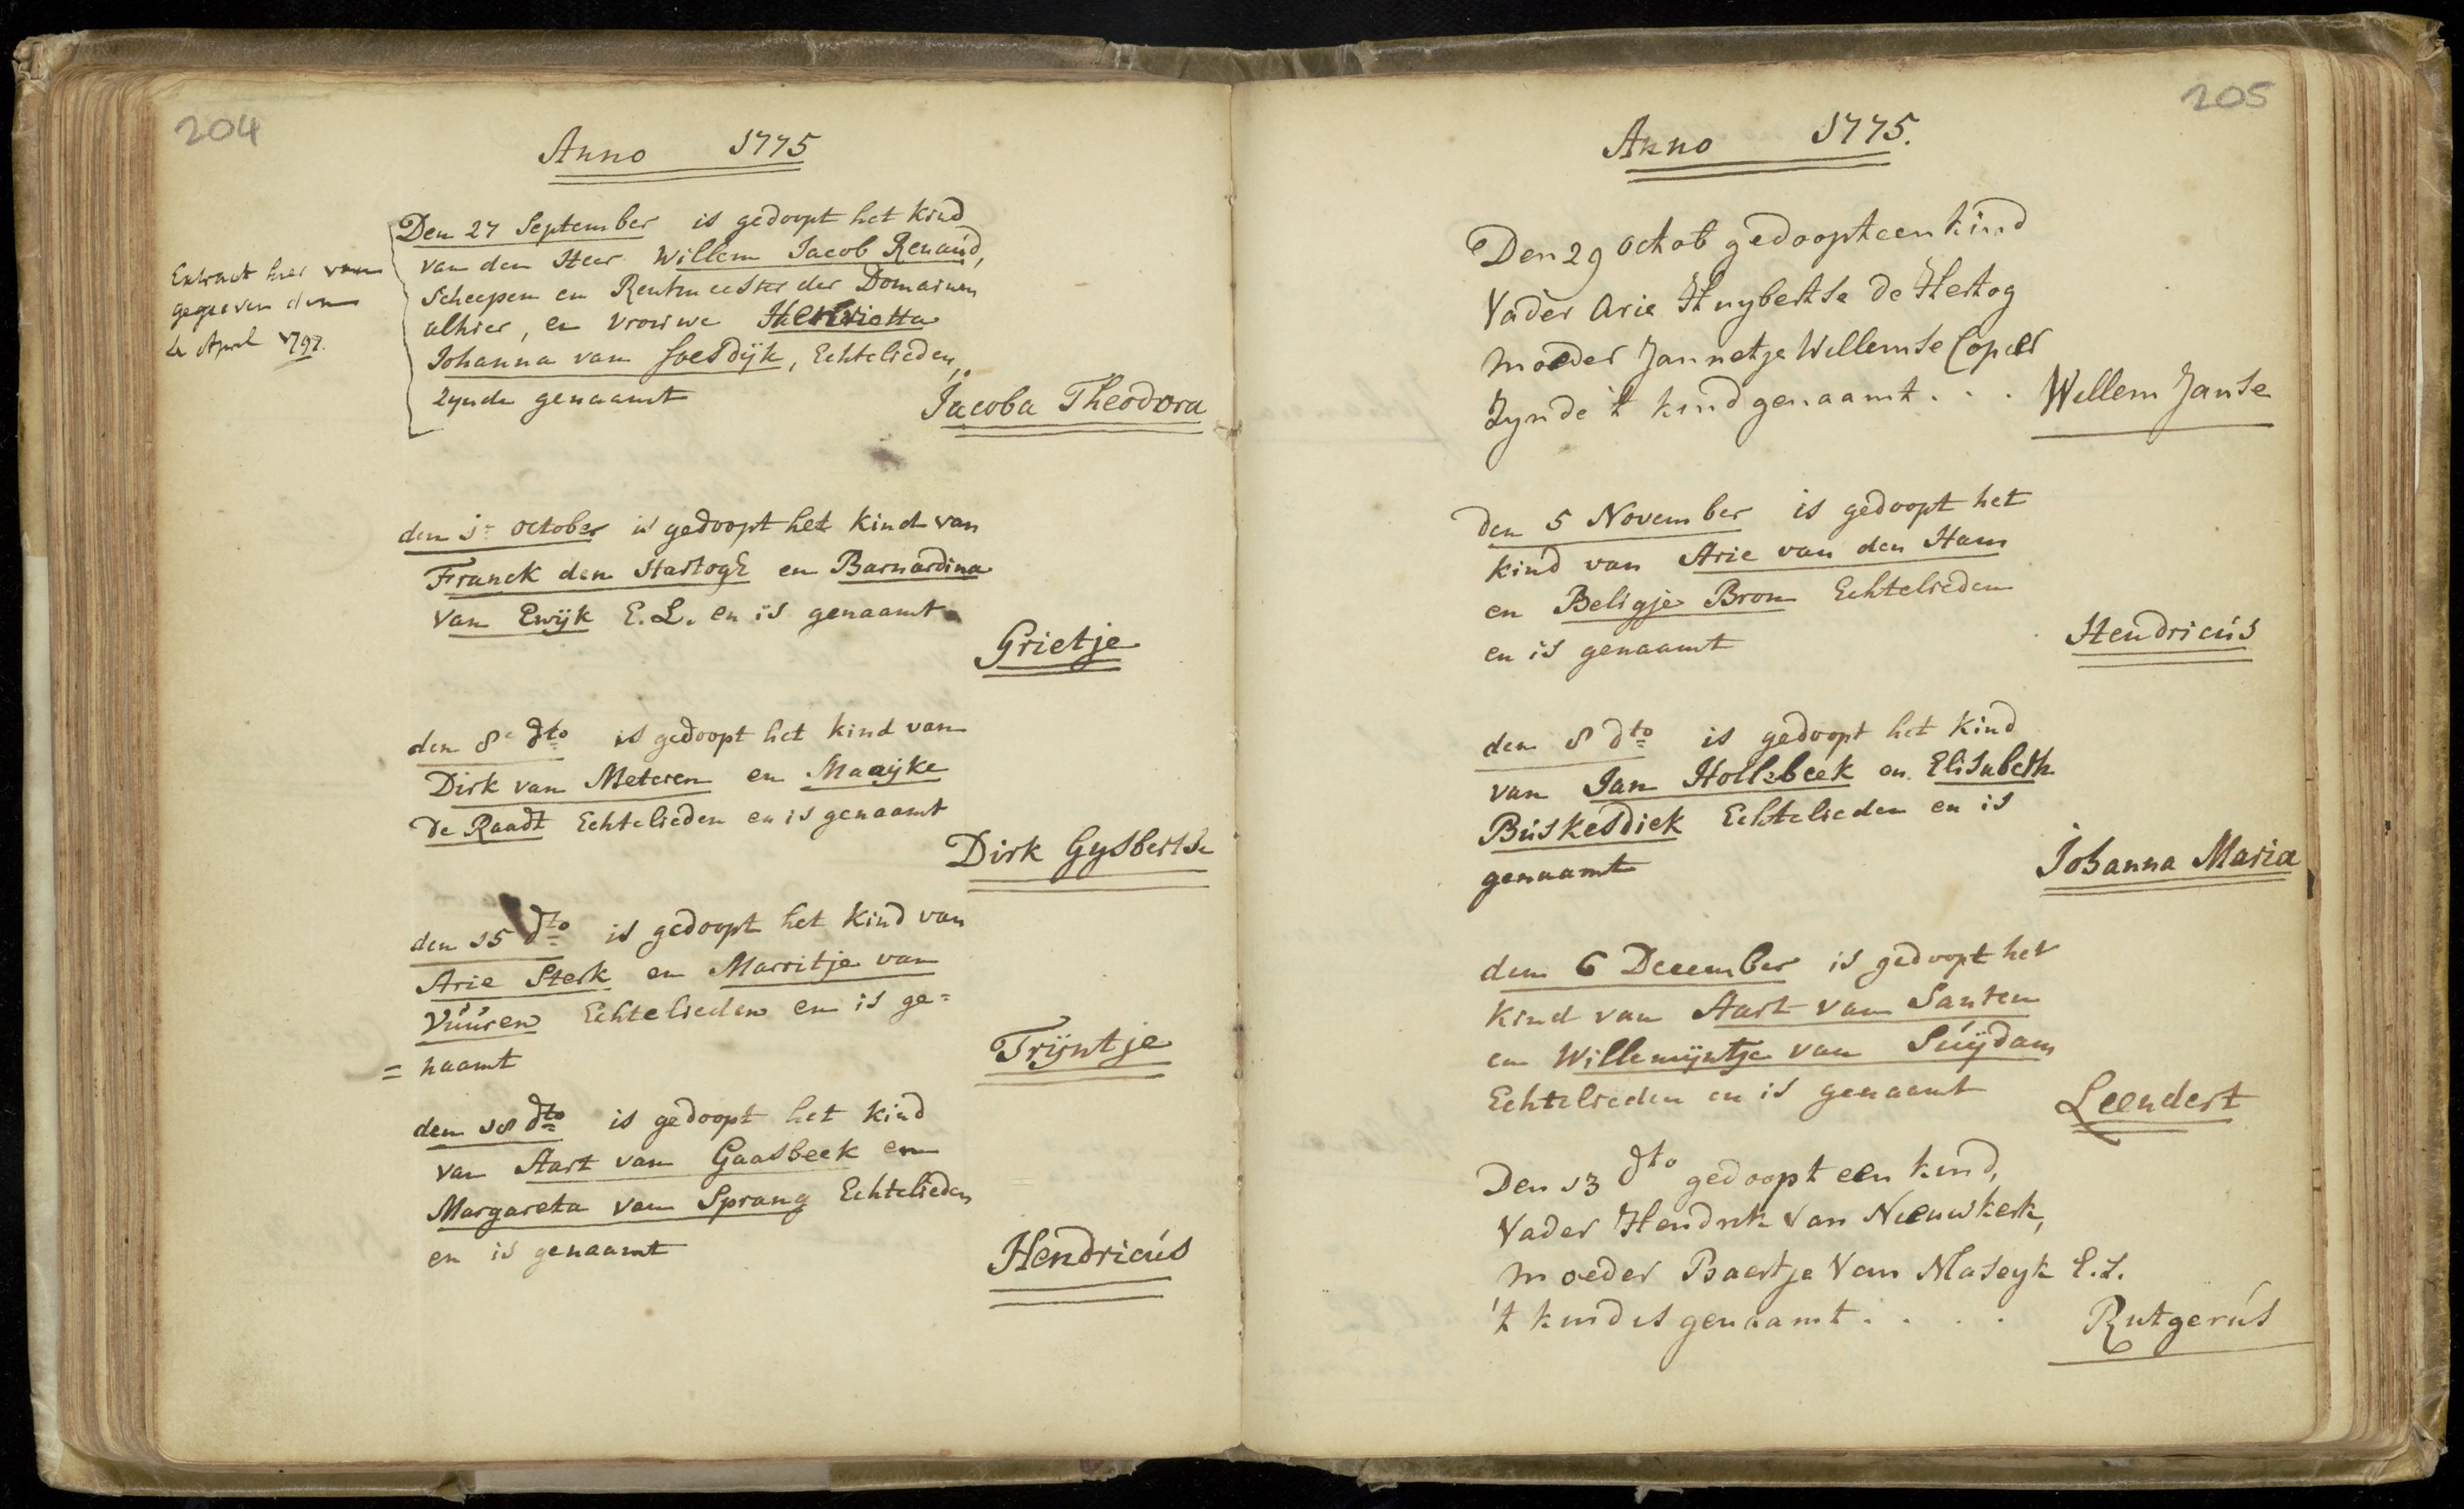 204
Anno 1775
Den 27 September is gedoopt het kind
van den Heer Willem Jacob Renaúd,
Scheepen en Rentmeester der Domainen
alhier, en Vrouwe Henrietta
Johanna van Soesdijk, Echtelieden,
zynde genaamt
Jacoba Theodora
Extract hier van
gegeeven den
4 April 1797.
den 1e october is gedoopt het kind van
Franck den Hartogh en Barnardina
van Ewijk E.L. en is genaamt
Grietje
den 8e dto is gedoopt het kind van
Dirk van Meteren en Maaijke
de Raadt Echtelieden en is genaamt
Dirk Gysbertse
den 15 dto is gedoopt het kind van
Arie Sterk en Marritje van
Vúúren Echtelieden en is ge=
=naamt
Trijntje
den 18 dto is gedoopt het kind
van Aart van Gaasbeek en
Margareta van Sprang Echtelieden
en is genaamt
Hendricús
205
Anno 1775.
Den 29 octob gedoopt een kind
Vader Arie Huybertse de Hertog
moeder Jannetje Willemse Copier
Zynde 't kind genaamt . . . Willem Janse
den 5 November is gedoopt het
kind van Arie van den Ham
en Beligje Bron Echtelieden
en is genaamt
Hendricús
den 8 dto is gedoopt het kind
van Jan Hollebeek en Elisabeth
Búskesdiek Echtelieden en is
genaamt
Johanna Maria
den 6 December is gedoopt het
kind van Aart van Santen
en Willemijntje van Súijdam
Echtelieden en is genaamt
Leendert
Den 13 dto gedoopt een kind,
Vader Hendrik van Nieuwkerk,
moeder Baertje Van Maseyk E.L.
't kind is genaamt . . . . Rutgerús